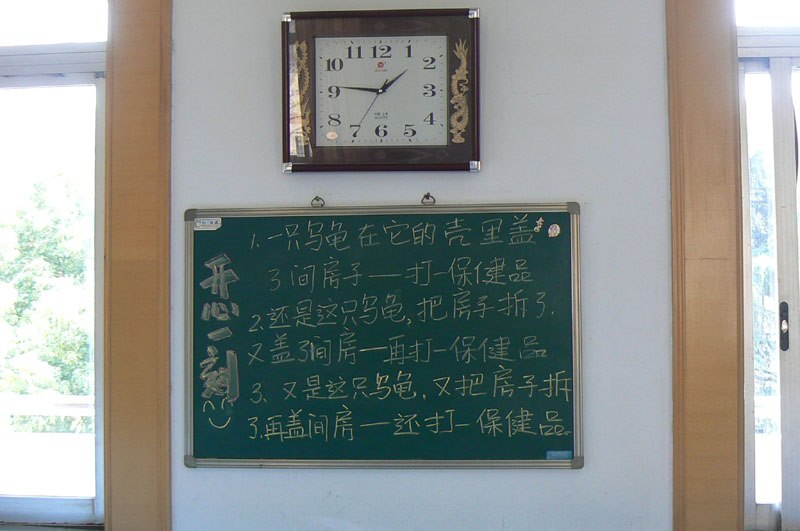 11 12 1
10 2
9 3
8 4
7 6 5
1. 一只乌龟在它的壳里盖
了间房子——打一保健品
2. 还是这只乌龟,把房子拆了.
又盖了间房—再打一保健品
3. 又是这只乌龟,又把房子拆
了.再盖间房—还打一保健品.
开心一刻